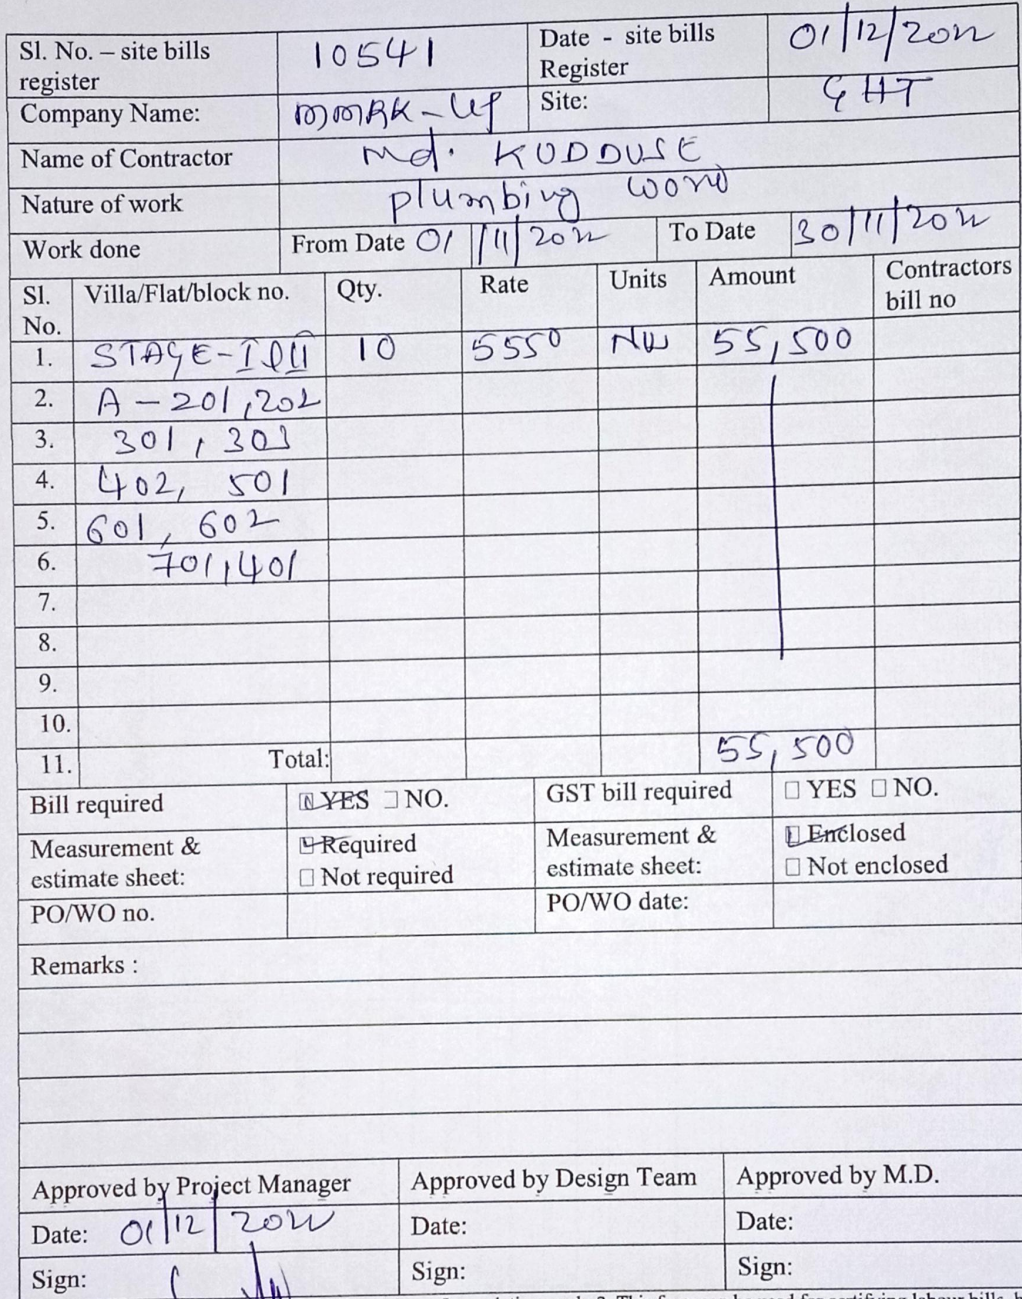 Sl. No. – site bills register 10541 Date - site bills Register 01/12/2022
Company Name: MMRK-LLP Site: GHT
Name of Contractor Md. KUDDUSE
Nature of work plumbing work
Work done From Date 01/11/2022 To Date 30/11/2022
Sl. No. Villa/Flat/block no. Qty. Rate Units Amount Contractors bill no
1. STAGE- 10 5550 55,500
2. A - 201,202
3. 301, 303
4. 402, 501
5. 601, 602
6. 701,401
7.
8.
9.
10.
11. Total: 55,500
Bill required ☑ YES ☐ NO. GST bill required ☐ YES ☐ NO.
Measurement & estimate sheet: ☑ Required ☐ Not required Measurement & estimate sheet: ☑ Enclosed ☐ Not enclosed
PO/WO no. PO/WO date:
Remarks :
Approved by Project Manager Approved by Design Team Approved by M.D.
Date: 01/12/2022 Date: Date:
Sign: Sign: Sign: